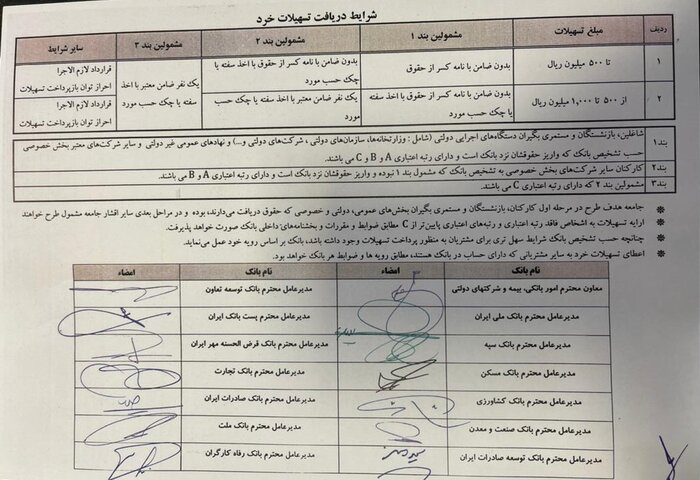 شرایط دریافت تسهیلات خرد
ردیف مبلغ تسهیلات مشمولین بند ۱ مشمولین بند ۲ مشمولین بند ۳ سایر شرایط
۱ تا ۵۰۰ میلیون ریال بدون ضامن با نامه کسر از حقوق بدون ضامن با نامه کسر از حقوق با اخذ سفته یا چک حسب مورد یک نفر ضامن معتبر با اخذ سفته یا چک حسب مورد قرارداد لازم الاجرا احراز توان بازپرداخت تسهیلات
۲ از ۵۰۰ تا ۱,۰۰۰ میلیون ریال بدون ضامن با نامه کسر از حقوق با اخذ سفته یا چک حسب مورد یک نفر ضامن معتبر با اخذ سفته یا چک حسب مورد قرارداد لازم الاجرا احراز توان بازپرداخت تسهیلات
بند۱ شاغلین، بازنشستگان و مستمری بگیران دستگاه‌های اجرایی دولتی (شامل : وزارتخانه‌ها، سازمان‌های دولتی ، شرکت‌های دولتی و...) و نهادهای عمومی غیر دولتی و سایر شرکت‌های معتبر بخش خصوصی
حسب تشخیص بانک که واریز حقوقشان نزد بانک است و دارای رتبه اعتباری A و B و C می باشند.
بند۲ کارکنان سایر شرکت‌های بخش خصوصی به تشخیص بانک که مشمول بند ۱ نبوده و واریز حقوقشان نزد بانک است و دارای رتبه اعتباری A و B می باشند.
بند۳ مشمولین بند ۲ که دارای رتبه اعتباری C می باشند.
جامعه هدف طرح در مرحله اول کارکنان، بازنشستگان و مستمری بگیران بخش‌های عمومی، دولتی و خصوصی که حقوق دریافت می‌دارند، بوده و در مراحل بعدی سایر اقشار جامعه مشمول طرح خواهند
ارایه تسهیلات به اشخاص فاقد رتبه اعتباری و رتبه‌های اعتباری پایین‌تر از C مطابق ضوابط و مقررات و بخشنامه‌های داخلی بانک صورت خواهد پذیرفت.
چنانچه حسب تشخیص بانک شرایط سهل تری برای مشتریان به منظور پرداخت تسهیلات وجود داشته باشد، بانک بر اساس رویه خود عمل می‌نماید.
اعطای تسهیلات خرد به سایر مشتریانی که دارای حساب در بانک هستند، مطابق رویه ها و ضوابط هر بانک خواهد بود.
نام بانک امضاء نام بانک امضاء
معاون محترم امور بانکی، بیمه و شرکتهای دولتی مدیرعامل محترم بانک توسعه تعاون
مدیرعامل محترم بانک ملی ایران مدیرعامل محترم پست بانک ایران
مدیرعامل محترم بانک سپه مدیرعامل محترم بانک قرض الحسنه مهر ایران
مدیرعامل محترم بانک مسکن مدیرعامل محترم بانک تجارت
مدیرعامل محترم بانک کشاورزی مدیرعامل محترم بانک صادرات ایران
مدیرعامل محترم بانک صنعت و معدن مدیرعامل محترم بانک ملت
مدیرعامل محترم بانک توسعه صادرات ایران مدیرعامل محترم بانک رفاه کارگران